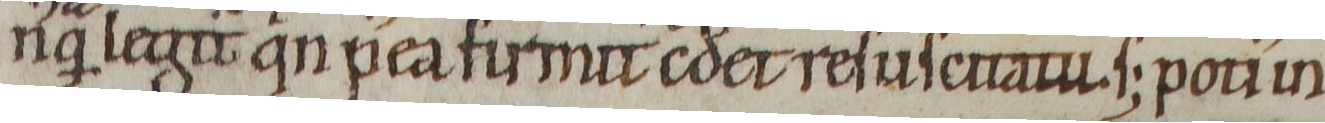 nq̣ legit qn̄ pea firmit c̄det resuscitatū. s; poti in